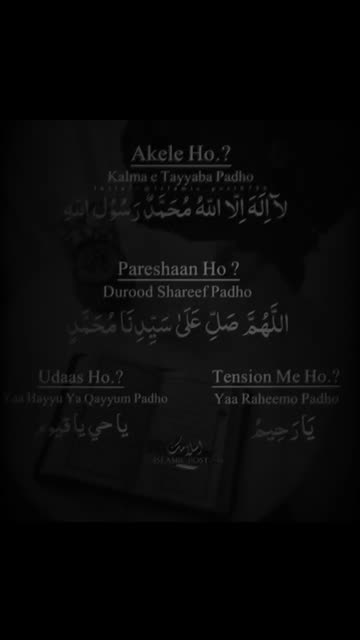 Akele Ho.?
Kalma e Tayyaba Padho
لَآ اِلٰهَ اِلَّا اللّٰهُ مُحَمَّدٌ رَسُوْلُ اللّٰهِ
Pareshaan Ho ?
Durood Shareef Padho
اللَّهُمَّ صَلِّ عَلَىٰ سَيِّدِنَا مُحَمَّدٍ
Udaas Ho.?
Yaa Hayyu Ya Qayyum Padho
يا حي يا قيوم
Tension Me Ho.?
Yaa Raheemo Padho
يَا رَحِيمُ
ISLAMIC POST